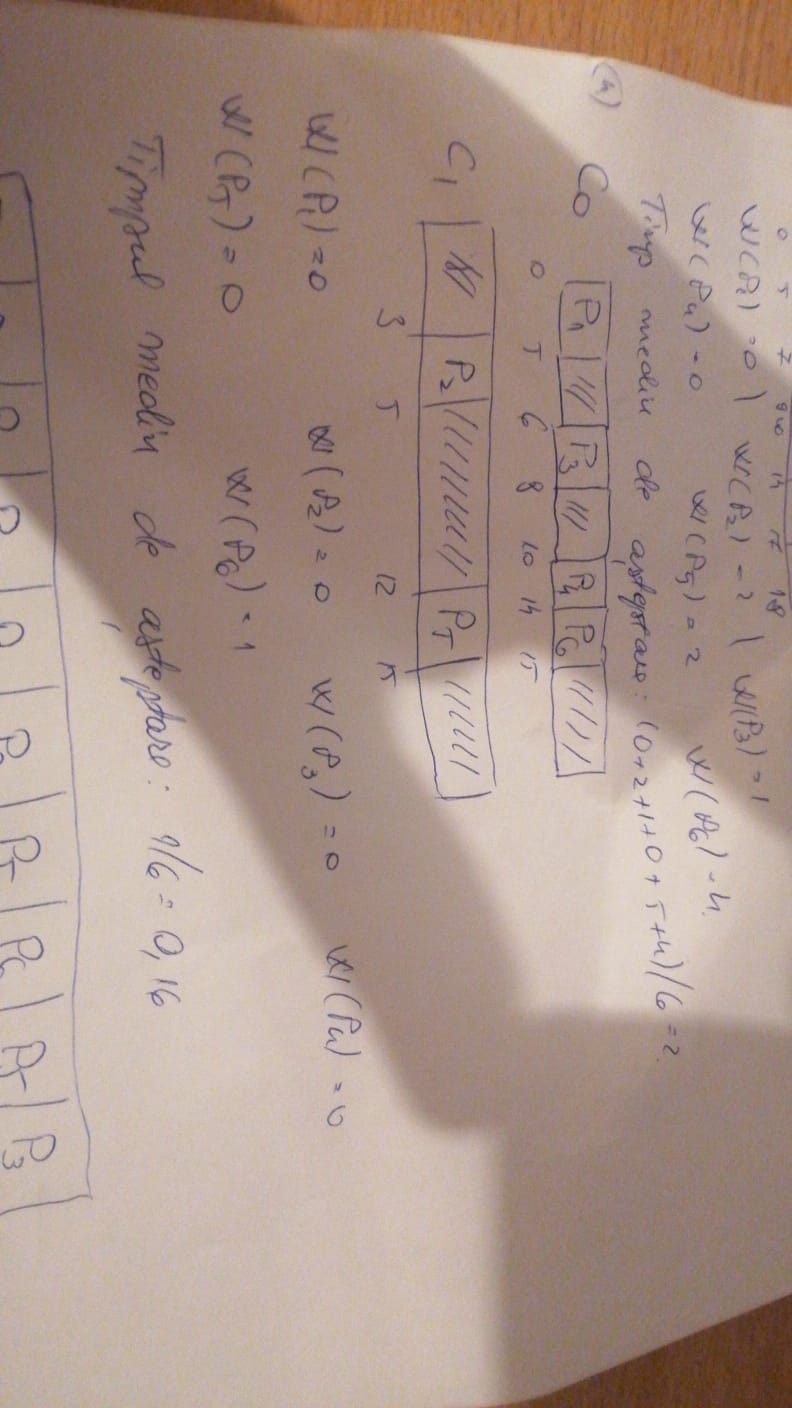 0 5 7 8 10 14 17 18
W(P1) = 0 | W(P2) = 2 | W(P3) = 1
W(P4) = 0 W(P5) = 2 W(P6) = 4
Timp mediu de așteptare: (0+2+1+0+5+4)/6 = 2.
(4) C0 P1 /// P3 /// P4 P6 /////
0 5 6 8 10 14 15
C1 /// P2 ////////// P5 //////
3 5 12 15
W(P1) = 0 W(P2) = 0 W(P3) = 0 W(P4) = 0
W(P5) = 0 W(P6) = 1
Timpul mediu de așteptare: 1/6 = 0,16
P5 P6 P5 P3